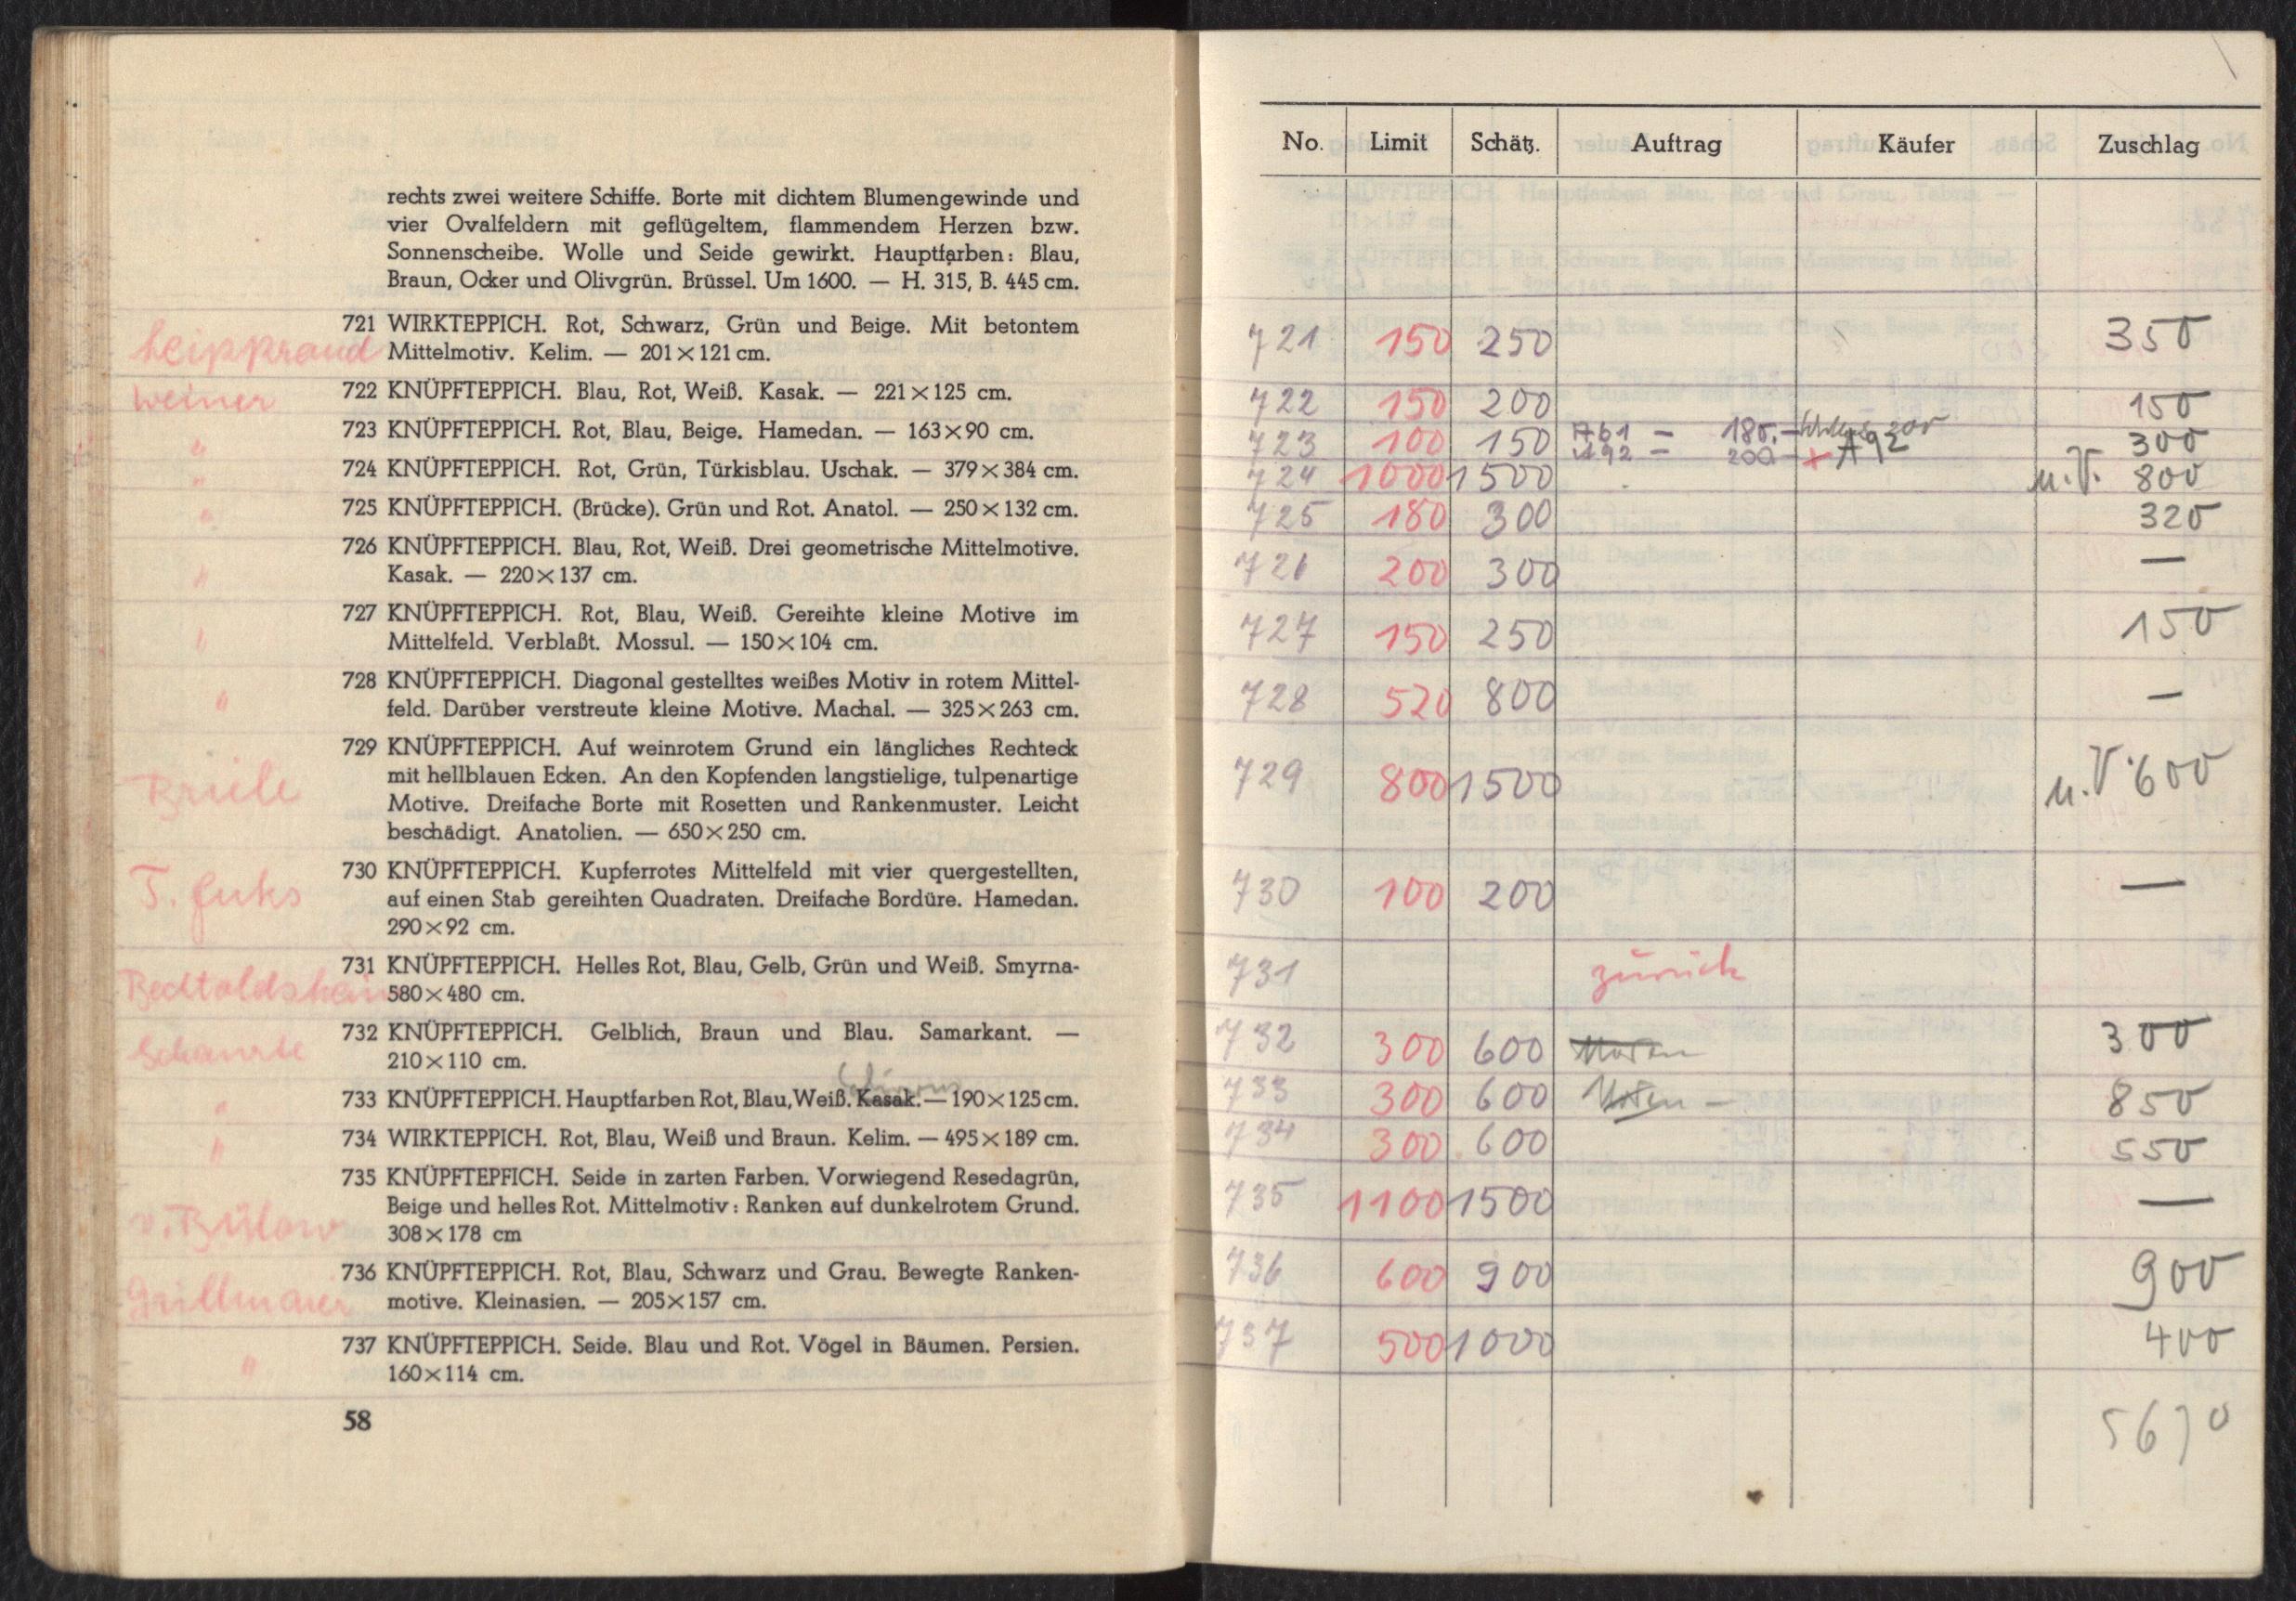 rechts zwei weitere Schiffe. Borte mit dichtem Blumengewinde und
vier Ovalfeldern mit geflügeltem, flammendem Herzen bzw.
Sonnenscheibe. Wolle und Seide gewirkt. Hauptfarben: Blau,
Braun, Ocker und Olivgrün. Brüssel. Um 1600. — H. 315, B. 445 cm.
721 WIRKTEPPICH. Rot, Schwarz, Grün und Beige. Mit betontem
Leipprand Mittelmotiv. Kelim. — 201×121 cm.
Weiner 722 KNÜPFTEPPICH. Blau, Rot, Weiß. Kasak. — 221×125 cm.
" 723 KNÜPFTEPPICH. Rot, Blau, Beige. Hamedan. — 163×90 cm.
" 724 KNÜPFTEPPICH. Rot, Grün, Türkisblau. Uschak. — 379×384 cm.
" 725 KNÜPFTEPPICH. (Brücke). Grün und Rot. Anatol. — 250×132 cm.
726 KNÜPFTEPPICH. Blau, Rot, Weiß. Drei geometrische Mittelmotive.
" Kasak. — 220×137 cm.
727 KNÜPFTEPPICH. Rot, Blau, Weiß. Gereihte kleine Motive im
" Mittelfeld. Verblaßt. Mossul. — 150×104 cm.
728 KNÜPFTEPPICH. Diagonal gestelltes weißes Motiv in rotem Mittel-
" feld. Darüber verstreute kleine Motive. Machal. — 325×263 cm.
729 KNÜPFTEPPICH. Auf weinrotem Grund ein längliches Rechteck
Briele mit hellblauen Ecken. An den Kopfenden langstielige, tulpenartige
Motive. Dreifache Borte mit Rosetten und Rankenmuster. Leicht
beschädigt. Anatolien. — 650×250 cm.
730 KNÜPFTEPPICH. Kupferrotes Mittelfeld mit vier quergestellten,
T. Fuks auf einen Stab gereihten Quadraten. Dreifache Bordüre. Hamedan.
290×92 cm.
731 KNÜPFTEPPICH. Helles Rot, Blau, Gelb, Grün und Weiß. Smyrna-
Bechtolsheim 580×480 cm.
732 KNÜPFTEPPICH. Gelblich, Braun und Blau. Samarkant. —
210×110 cm.
" 733 KNÜPFTEPPICH. Hauptfarben Rot, Blau, Weiß. Kasak. — 190×125 cm.
" 734 WIRKTEPPICH. Rot, Blau, Weiß und Braun. Kelim. — 495×189 cm.
735 KNÜPFTEPFICH. Seide in zarten Farben. Vorwiegend Resedagrün,
Beige und helles Rot. Mittelmotiv: Ranken auf dunkelrotem Grund.
v. Bülow 308×178 cm
736 KNÜPFTEPPICH. Rot, Blau, Schwarz und Grau. Bewegte Ranken-
Grillmaier motive. Kleinasien. — 205×157 cm.
737 KNÜPFTEPPICH. Seide. Blau und Rot. Vögel in Bäumen. Persien.
" 160×114 cm.
58
No. Limit Schätz. Auftrag Käufer Zuschlag
721 150 250 350
722 150 200 150
723 100 150 A61 — 180.— 300
A92 — 200.— × A92
724 1000 1500 u.V. 800
725 180 300 320
726 200 300 —
727 150 250 150
728 520 800 —
729 800 1500 u.V. 600
730 100 200 —
731 zurück
732 300 600 300
733 300 600 850
734 300 600 550
735 1100 1500 —
736 600 900 900
737 500 1000 400
5670